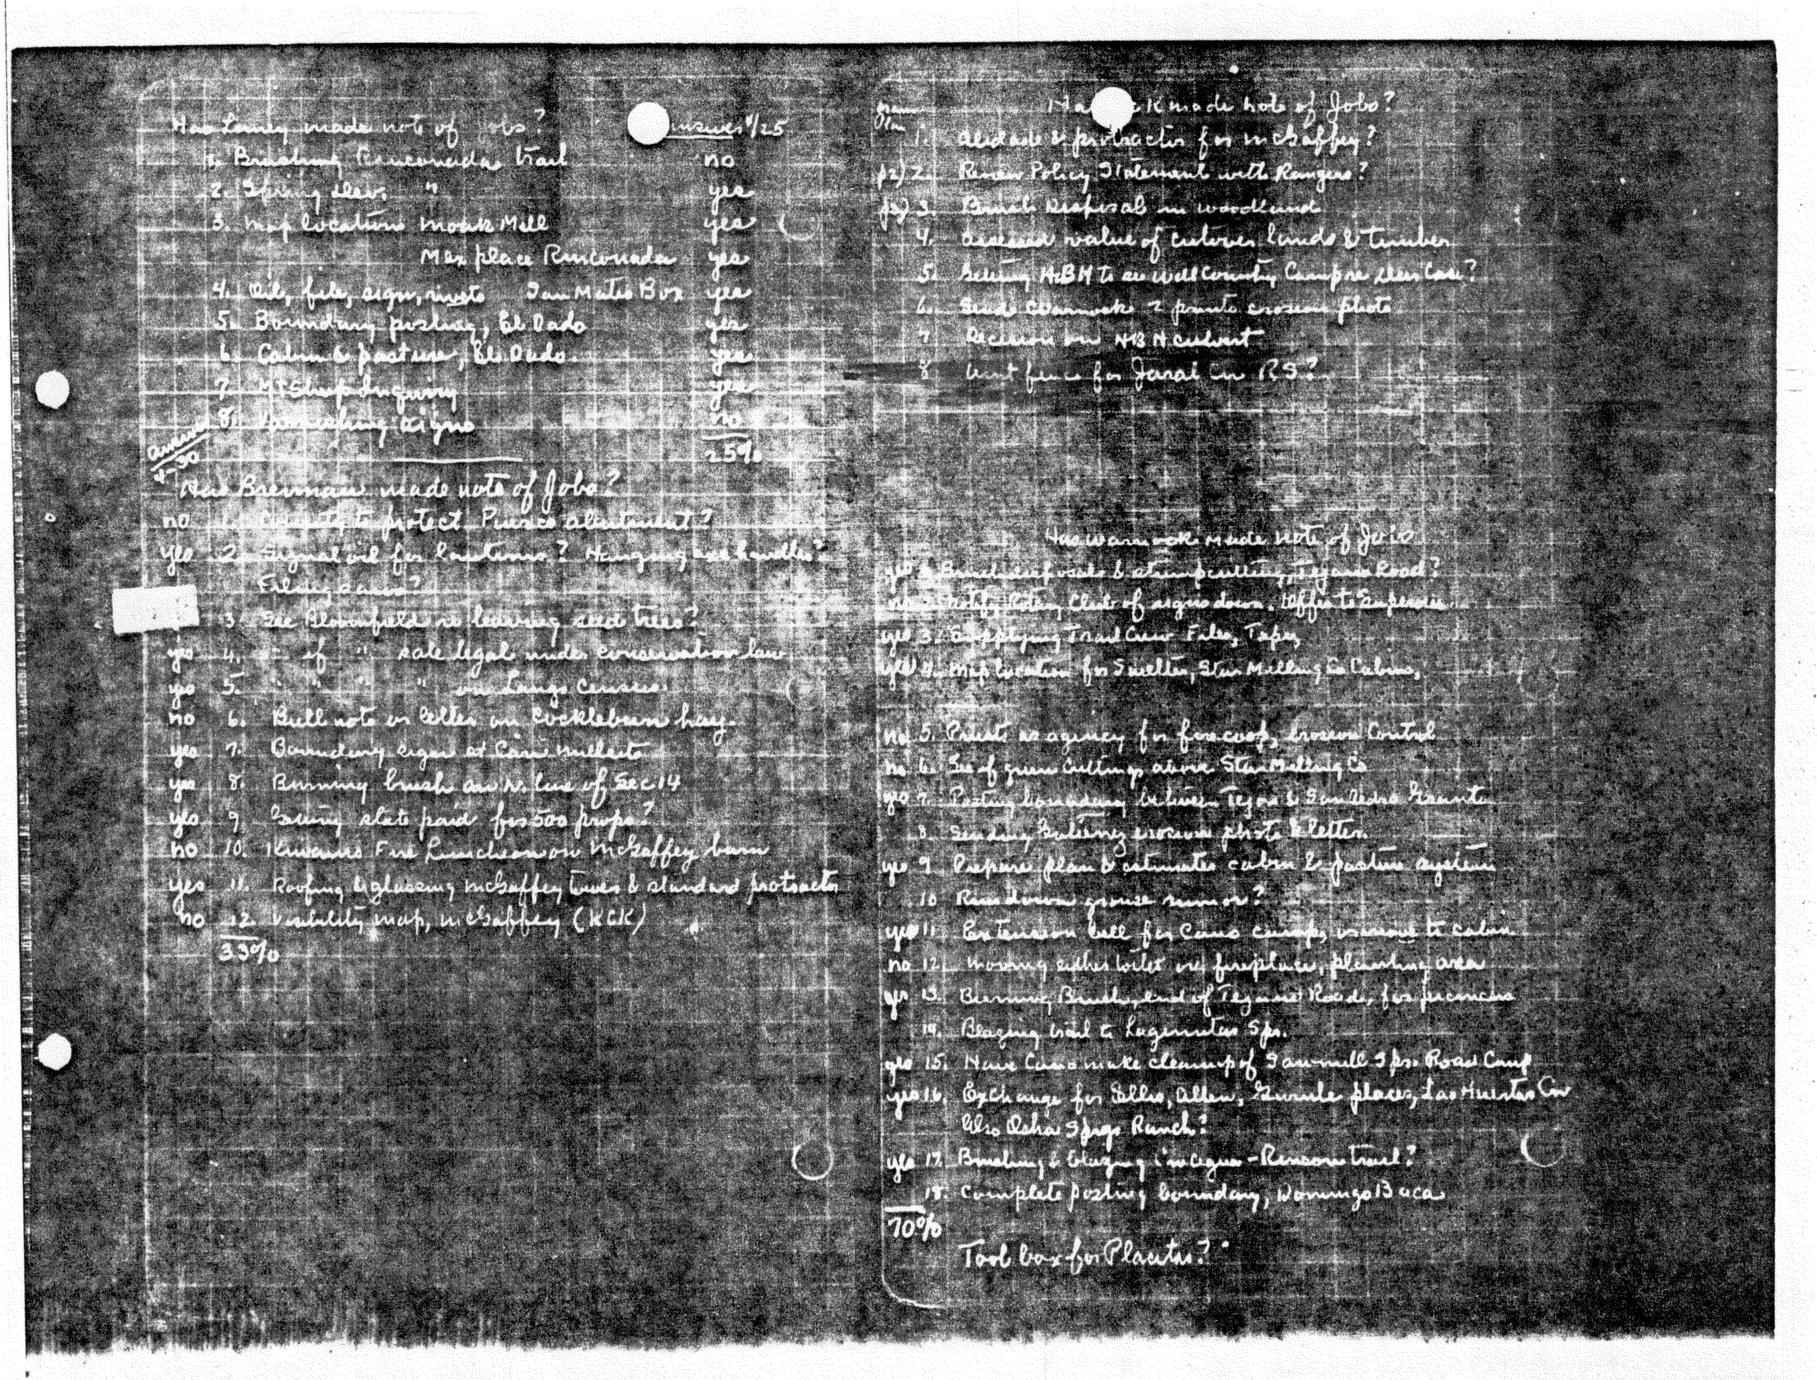 Has Laney made note of Jobs? Answers 4/25
1. Brushing Rinconada trail no
2. Spring dev. " yes
3. Map location Monk Mill yes
Mex place Rinconada yes
4. Oil, file, sign, rivets San Mateo Box yes
5. Boundary posting, El Dado yes
6. Cabin & pasture, El Dado. yes
7. Mt Sheep Inquiry yes
8. Varnishing signs no
25%
answers
4-30
Has Brennan made note of Jobs?
no 1. County to protect Puerco abutment?
yes 2. Signal oil for lanterns? Hanging axe handles?
Filing saws?
3. See Bloomfield re leaving seed trees?
yes 4. " if " sale legal under conservation law
yes 5. " " " " on Langs Census.
no 6. Bull note or letter on Cocklebur hay.
yes 7. Boundary sign at
yes 8. Burning brush on N. line of Sec 14
yes 9. Getting state paid for 500 props?
no 10. Kiwanis Fire Luncheon on McGaffey burn
yes 11. Roofing & glassing McGaffey tower & standard protractor
no 12. Visibility map, McGaffey (KCK)
33%
K made note of Jobs?
1. Alidade & protractor for McGaffey?
p2) 2. Review Policy Statement with Rangers?
3. Brush disposal in woodland
4. Assessed value of cutover lands & timber
5. Getting H.B.H to see Will County Camp re deer Case?
6. Send Warnock 2 prints erosion photo
7. Decision on H B H culvert
8. Unit fence for Jaral Cn R S?
Has Warnock made note of Jobs
yes 1. Brush disposal & stump cutting, Tejano Road?
no 2. Notify Rotary Club of signs down. Offer to Supervise
yes 3. Supplying Trail Crew Files, Tapes,
yes 4. Map location for Smelter, Star Milling Co Cabins,
no 5. Priests as agency for fire coop, erosion Control
no 6. See of green Cuttings above Star Milling Co
yes 7. Posting boundary between Tejon & San Pedro Grants
8. Sending Gutierrez erosion photo & letter.
yes 9. Prepare plan & estimates cabin & pasture system
10. Run down grouse rumor?
yes 11. Extension bell for Cano camp, remove to cabin
no 12. Moving either toilet or fireplace, planting area
yes 13. Burning Brush, end of Tejano Road, for picnicers
14. Blazing trail to Lagunitas Spr.
yes 15. Have Cano make cleanup of Sawmill Spr. Road Camp
yes 16. Exchange for Sellers, Allen, Gurule places, Las Huertas Cn
Also Osha Spgs Ranch?
yes 17. Brushing & blazing Cn Agua - Rincon trail?
18. Complete posting boundary, Domingo Baca
70%
Tool box for Placitas?